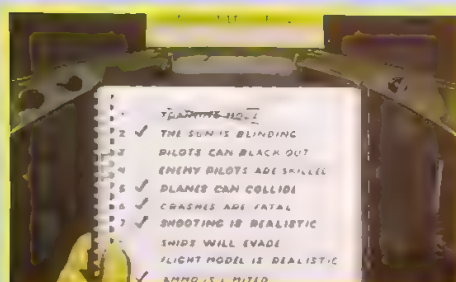 1 TRAINING MODE
2 ✓ THE SUN IS BLINDING
3 PILOTS CAN BLACK OUT
4 ENEMY PILOTS ARE SKILLED
5 ✓ PLANES CAN COLLIDE
6 ✓ CRASHES ARE FATAL
7 ✓ SHOOTING IS REALISTIC
SHIPS WILL EVADE
FLIGHT MODEL IS REALISTIC
✓ AMMO IS LIMITED